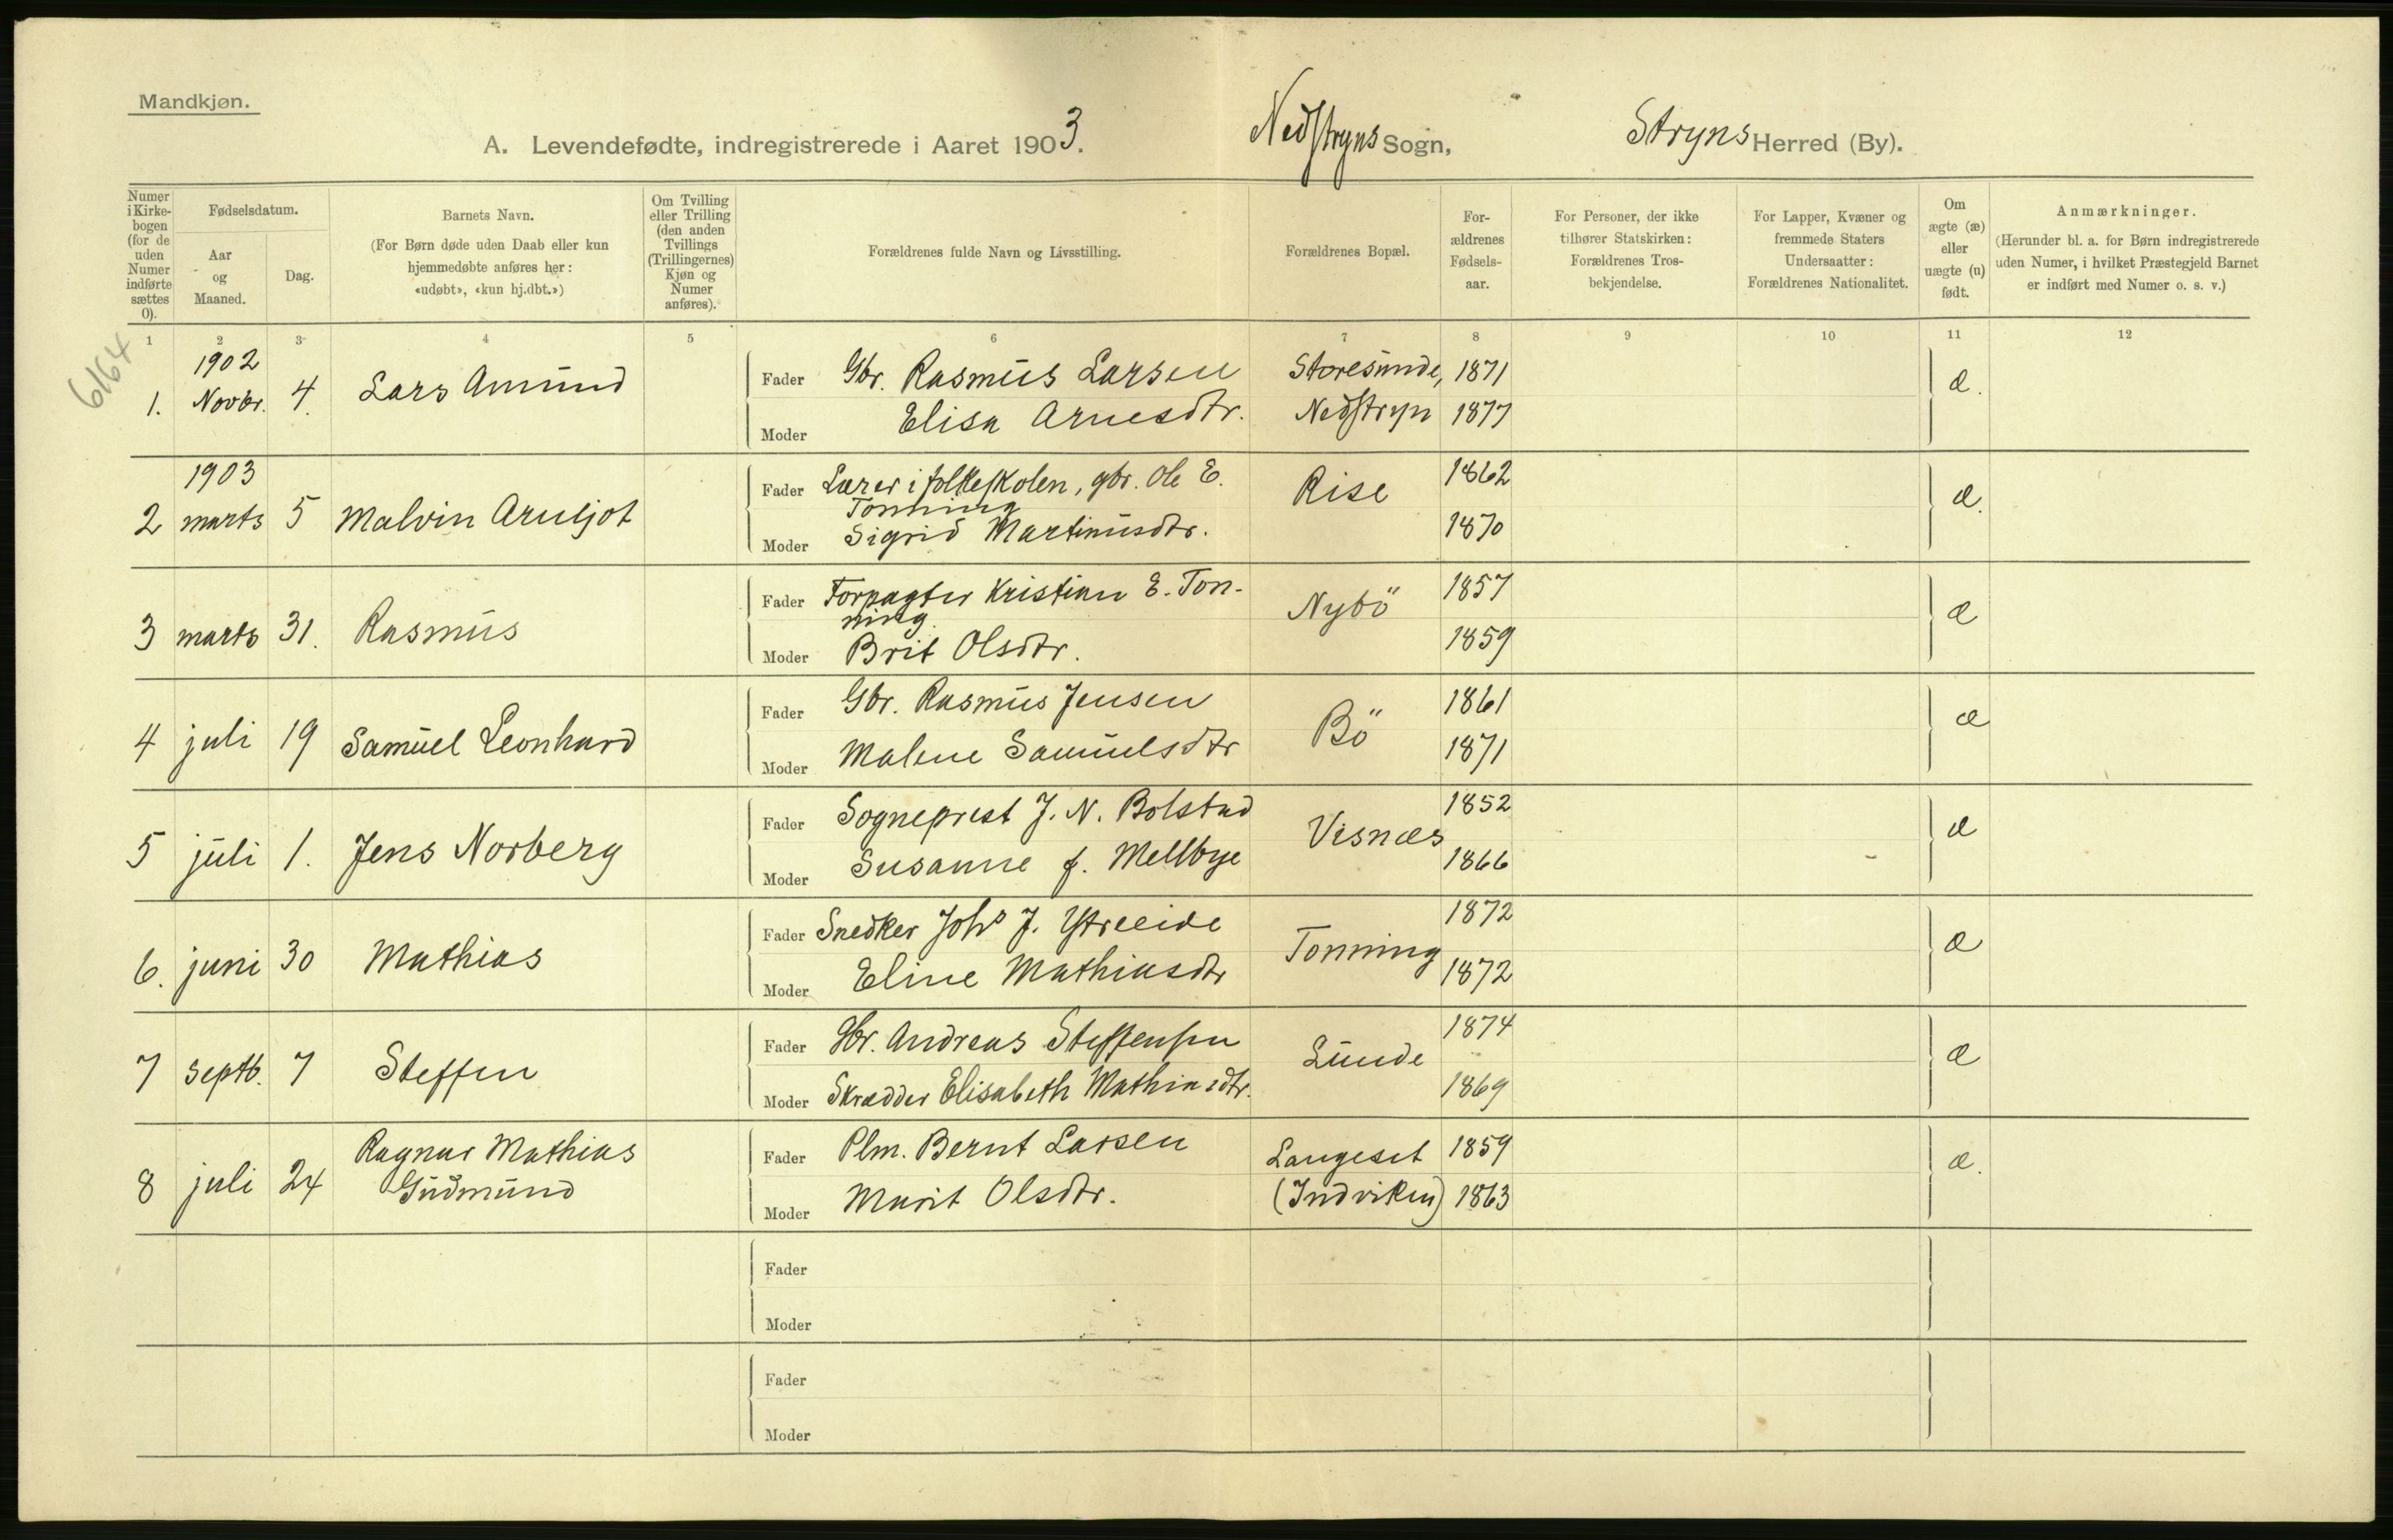 Mandkjøn.
A. Levendefødte, indregistrerede i Aaret 1903. Nedstryns Sogn, Stryns Herred (By).
Numer i Kirkebogen (for de uden Numer indførte sættes 0).
Fødselsdatum.
Aar og Maaned.
Dag.
Barnets Navn.
(For Børn døde uden Daab eller kun hjemmedøbte anføres her: «udøbt», «kun hj.dbt.»)
Om Tvilling eller Trilling (den anden Tvillings (Trillingernes) Kjøn og Numer anføres).
Forældrenes fulde Navn og Livsstilling.
Forældrenes Bopæl.
Forældrenes Fødselsaar.
For Personer, der ikke tilhører Statskirken: Forældrenes Trosbekjendelse.
For Lapper, Kvæner og fremmede Staters Undersaatter: Forældrenes Nationalitet.
Om ægte (æ) eller uægte (u) født.
Anmærkninger.
(Herunder bl. a. for Børn indregistrerede uden Numer, i hvilket Præstegjeld Barnet er indført med Numer o. s. v.)
1 2 3 4 5 6 7 8 9 10 11 12
6164
1902
1. Novbr. 4. Lars Amund Fader Gbr. Rasmus Larsen Storesunde, 1871 æ.
Moder Elisa Arnesdtr. Nedstryn 1877
1903
2 marts 5 Malvin Arnljot Fader Lærer i folkeskolen, gbr. Ole E. Rise 1862 æ.
Tonning
Moder Sigrid Martinusdtr. 1870
3 marts 31. Rasmus Fader Forpagter Kristian E. Ton- Nybö 1857 æ
ning.
Moder Brit Olsdtr. 1859
4 juli 19 Samuel Leonhard Fader Gbr. Rasmus Jensen Bö 1861 æ
Moder Malene Samuelsdtr 1871
5 juli 1. Jens Norberg Fader Sogneprest J. N. Bolstad Visnæs 1852 æ
Moder Susanne f. Mellbye 1866
6. juni 30 Mathias Fader Snedker Johs J. Ytreeide Tonning 1872 æ
Moder Eline Mathiasdtr 1872
7 septb. 7 Steffen Fader Gbr. Andreas Steffensen Lunde 1874 æ
Moder Skrædder Elisabeth Mathiasdtr. 1869
8 juli 24 Ragnar Mathias Fader Plm. Bernt Larsen Langeset 1859 æ.
Gudmund Moder Marit Olsdtr. (Indviken) 1863
Fader
Moder
Fader
Moder